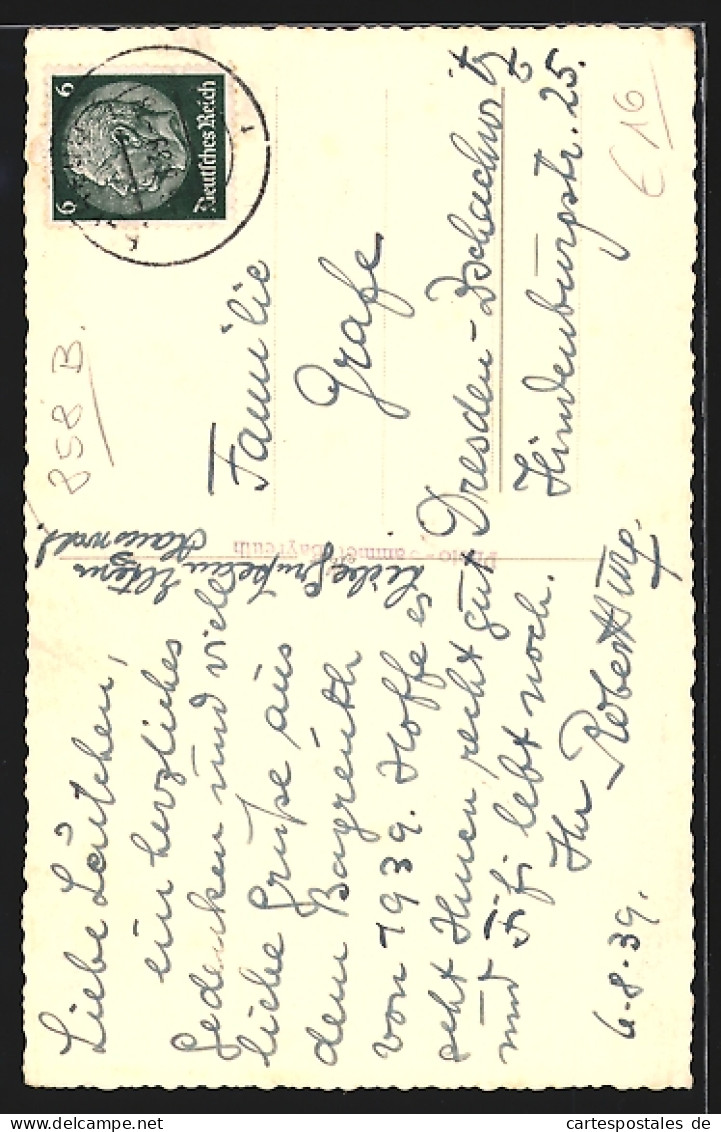 Liebe Leutchen,
ein herzliches
Gedenken und viele
liebe Grüße aus
dem Bayreuth
von 1939. Hoffe es
geht Ihnen recht gut
und Fifi lebt noch.
Ihr Robert
6.8.39.
Eltern
Photo Bayreuth
6 6
Deutsches Reich
Familie
Grafe
Dresden-Zschachwitz
Hindenburgstr. 25.
858 B.
€ 16
www.cartespostales.de
cartespostales de